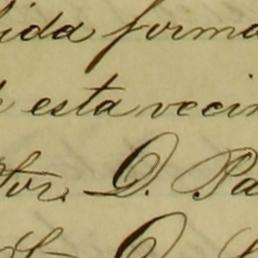 ida forma
esta vecin
tor. D. Pa
D.